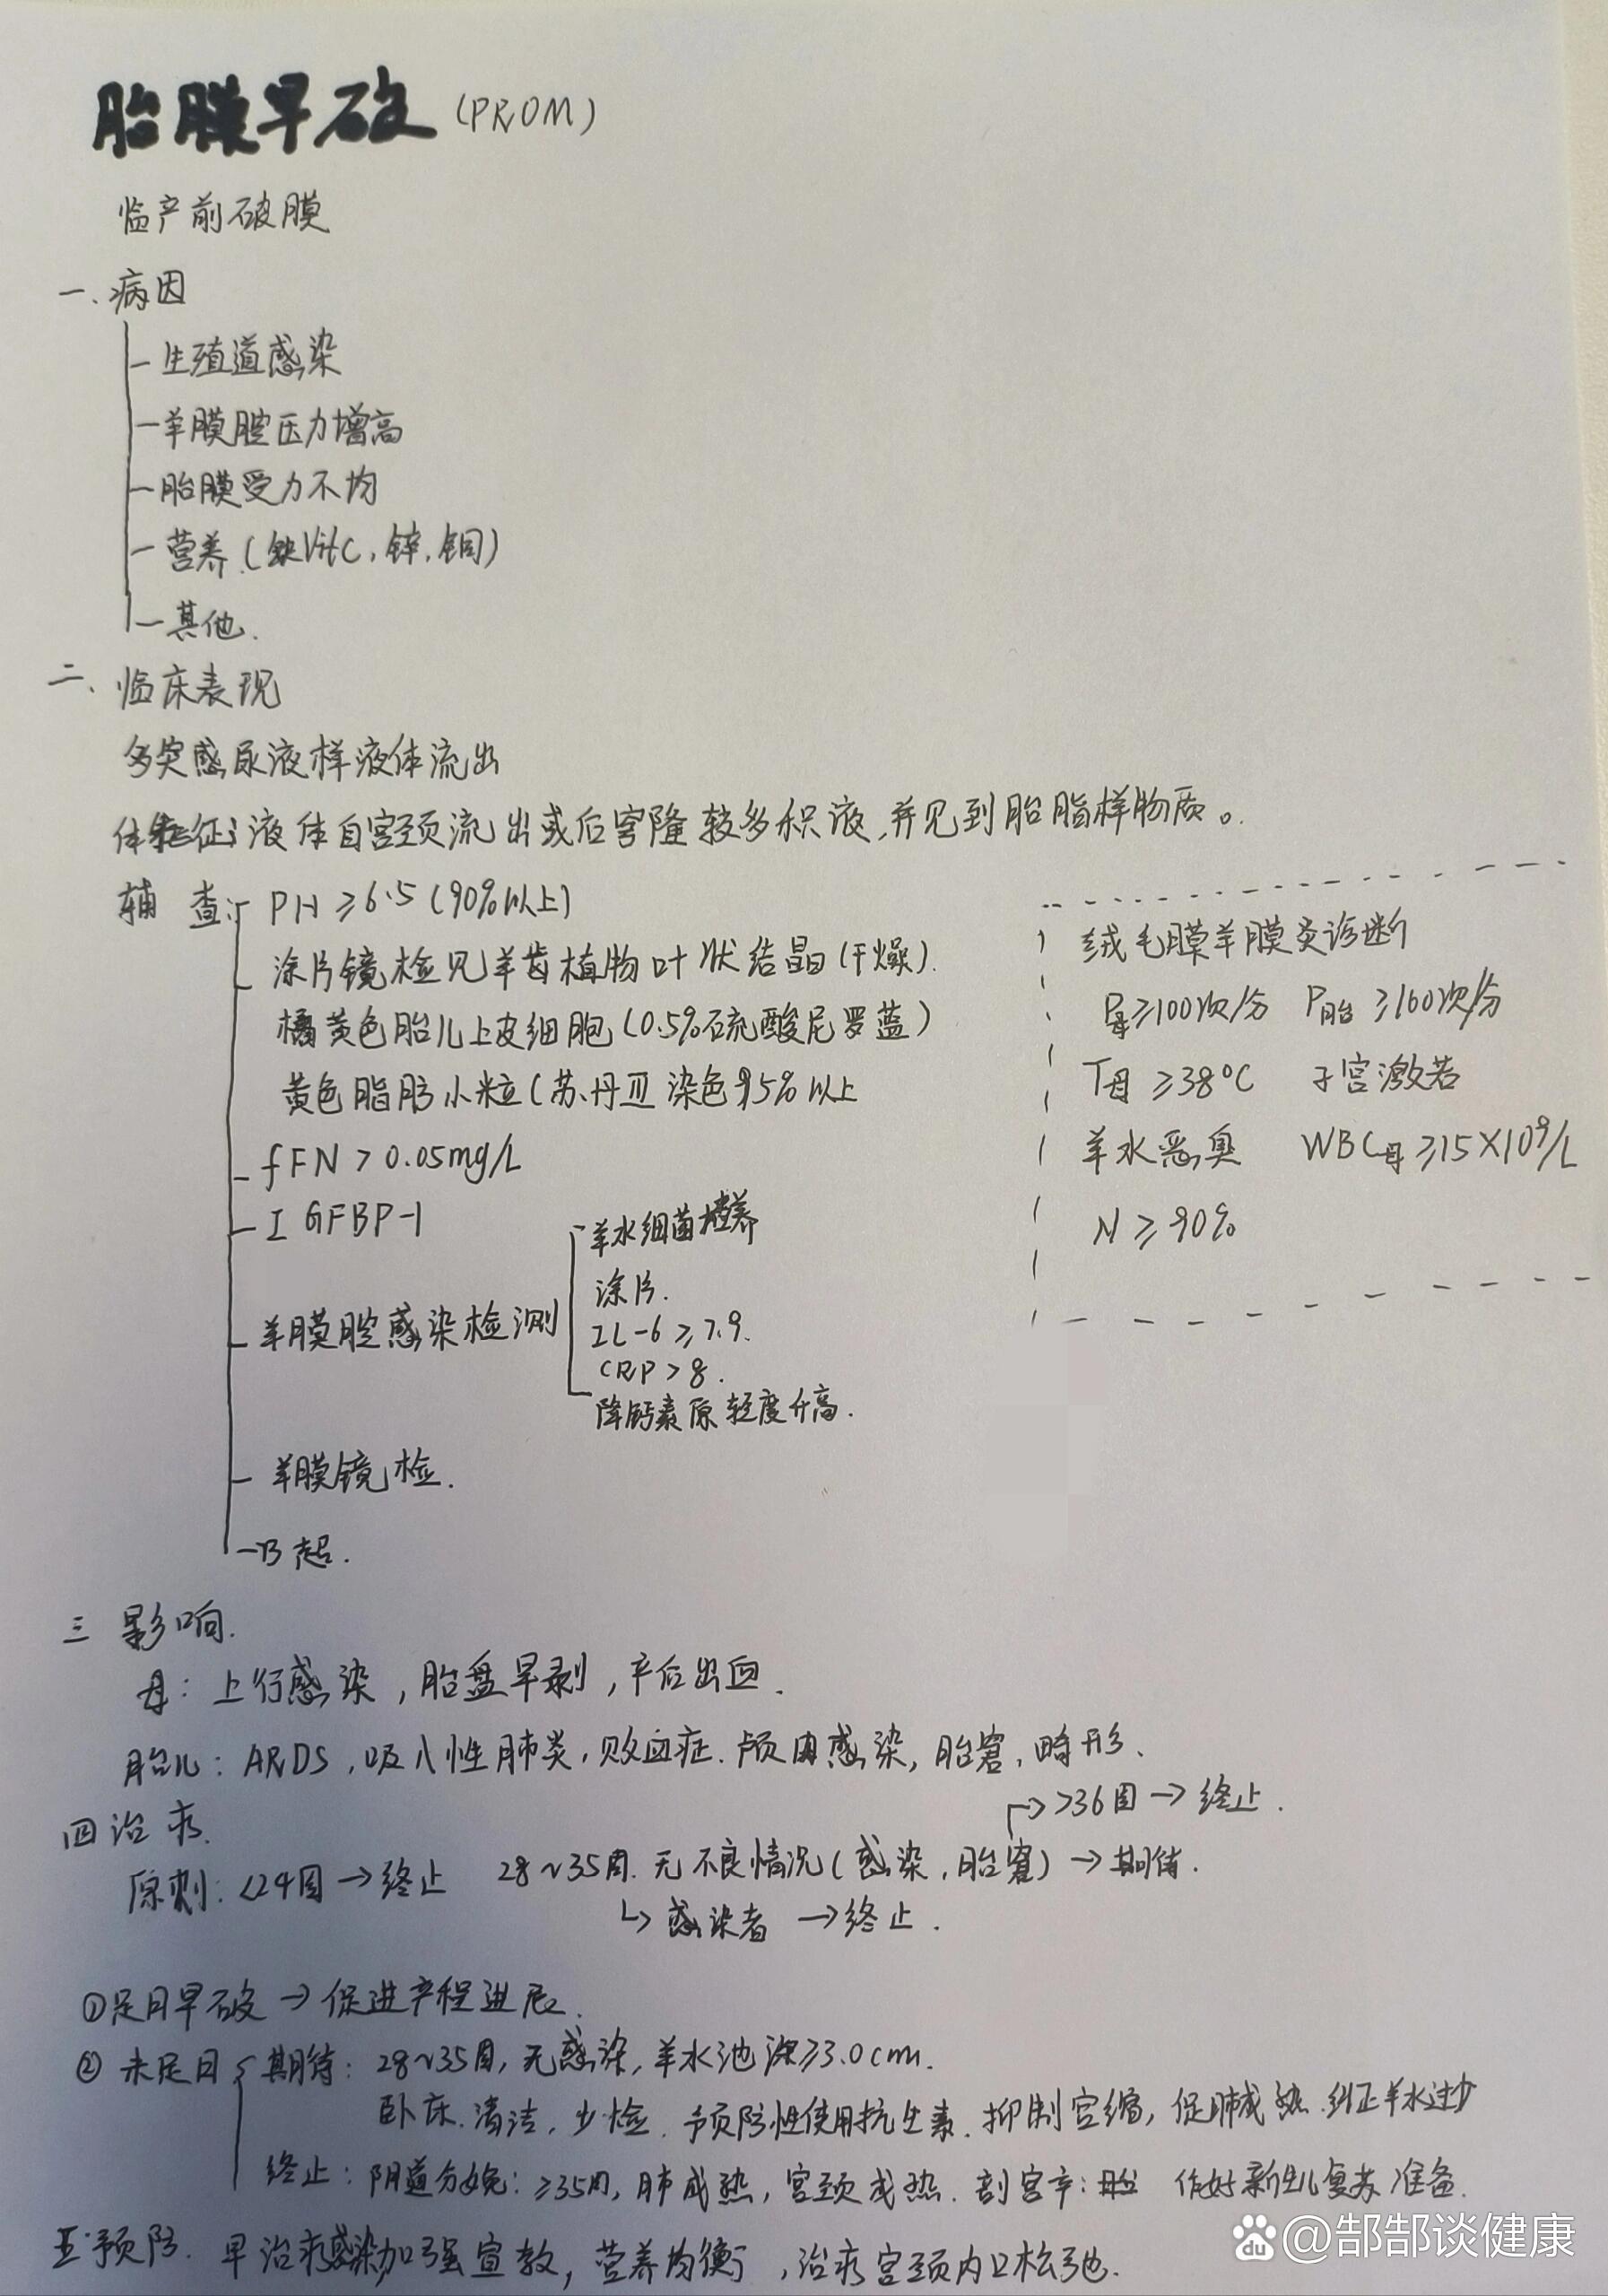 胎膜早破 (PROM)
临产前破膜
一、病因
生殖道感染
羊膜腔压力增高
胎膜受力不均
营养(缺VitC,锌,铜)
其他.
二、临床表现
多突感尿液样液体流出
体征:液体自宫颈流出或后穹隆较多积液,并见到胎脂样物质。
辅查: PH≥6.5(90%以上)
涂片镜检见羊齿植物叶状结晶(干燥).
橘黄色胎儿上皮细胞(0.5%硫酸尼罗蓝)
黄色脂肪小粒(苏丹Ⅲ染色95%以上
fFN>0.05mg/L
IGFBP-1
羊膜腔感染检测
羊水细菌培养
涂片.
IL-6≥7.9.
CRP>8.
降钙素原轻度升高.
羊膜镜检.
B超.
绒毛膜羊膜炎诊断
P母≥100次/分 P胎≥160次/分
T母≥38°C 子宫激若
羊水恶臭 WBC母≥15×10⁹/L
N≥90%
三 影响.
母:上行感染,胎盘早剥,产后出血.
胎儿:ARDS,吸入性肺炎,败血症.颅内感染,胎窘,畸形.
四 治疗.
>36周→终止.
原则:<24周→终止 28~35周.无不良情况(感染,胎窘)→期待.
感染者→终止.
①足月早破→促进产程进展.
②未足月 期待:28~35周,无感染,羊水池深≥3.0cm.
卧床.清洁,少检.预防性使用抗生素.抑制宫缩,促肺成熟.纠正羊水过少
终止:阴道分娩:≥35周,肺成熟,宫颈成熟.剖宫产: 作好新生儿复苏准备.
五.预防.早治疗感染,加强宣教,营养均衡,治疗宫颈内口松弛.
du @郜郜谈健康